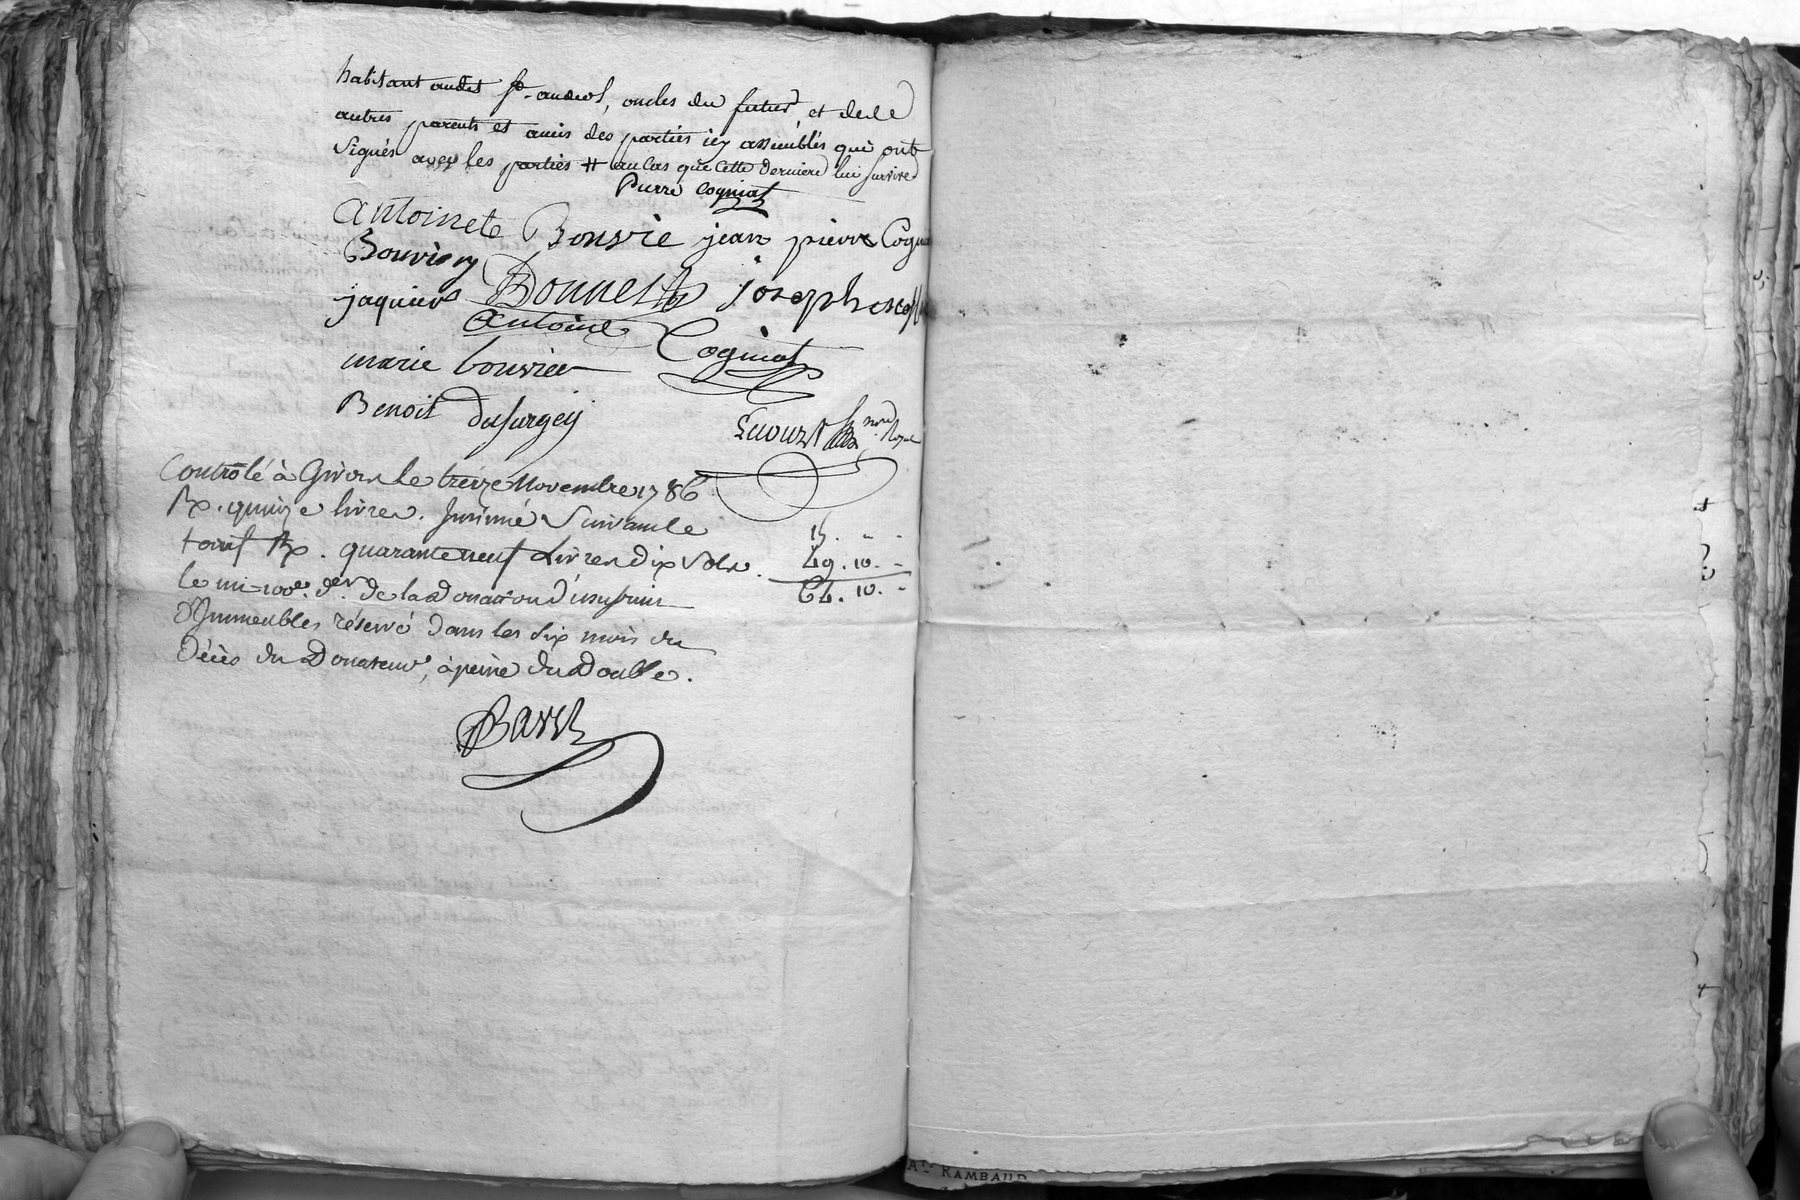 habitant audit st. andeol, oncles du futur, et de
autres parents et amis des parties icy assemblés qui ont
signés avec les parties # au cas que cette derniere lui survive
Pierre Cogniat
antoinete Bonvie jean pierre Cogn
Bouvier
jaquier Bonnet joseph
antoine Cogniat
marie bouvier
Benoit dusurgey
nre Royal
Controlé à Givors le treize Novembre 1786
Rx. quinze livres. Insinué Suivant le 15. " "
tarif Rx. quarante neuf Livres dix Sols. 49. 10. "
le mi-100e. d. de la Donation d'usufruit 64. 10. "
d'Immeubles réservé dans les six mois du
décès du Donateur, à peine du Double.
At. RAMBAUD